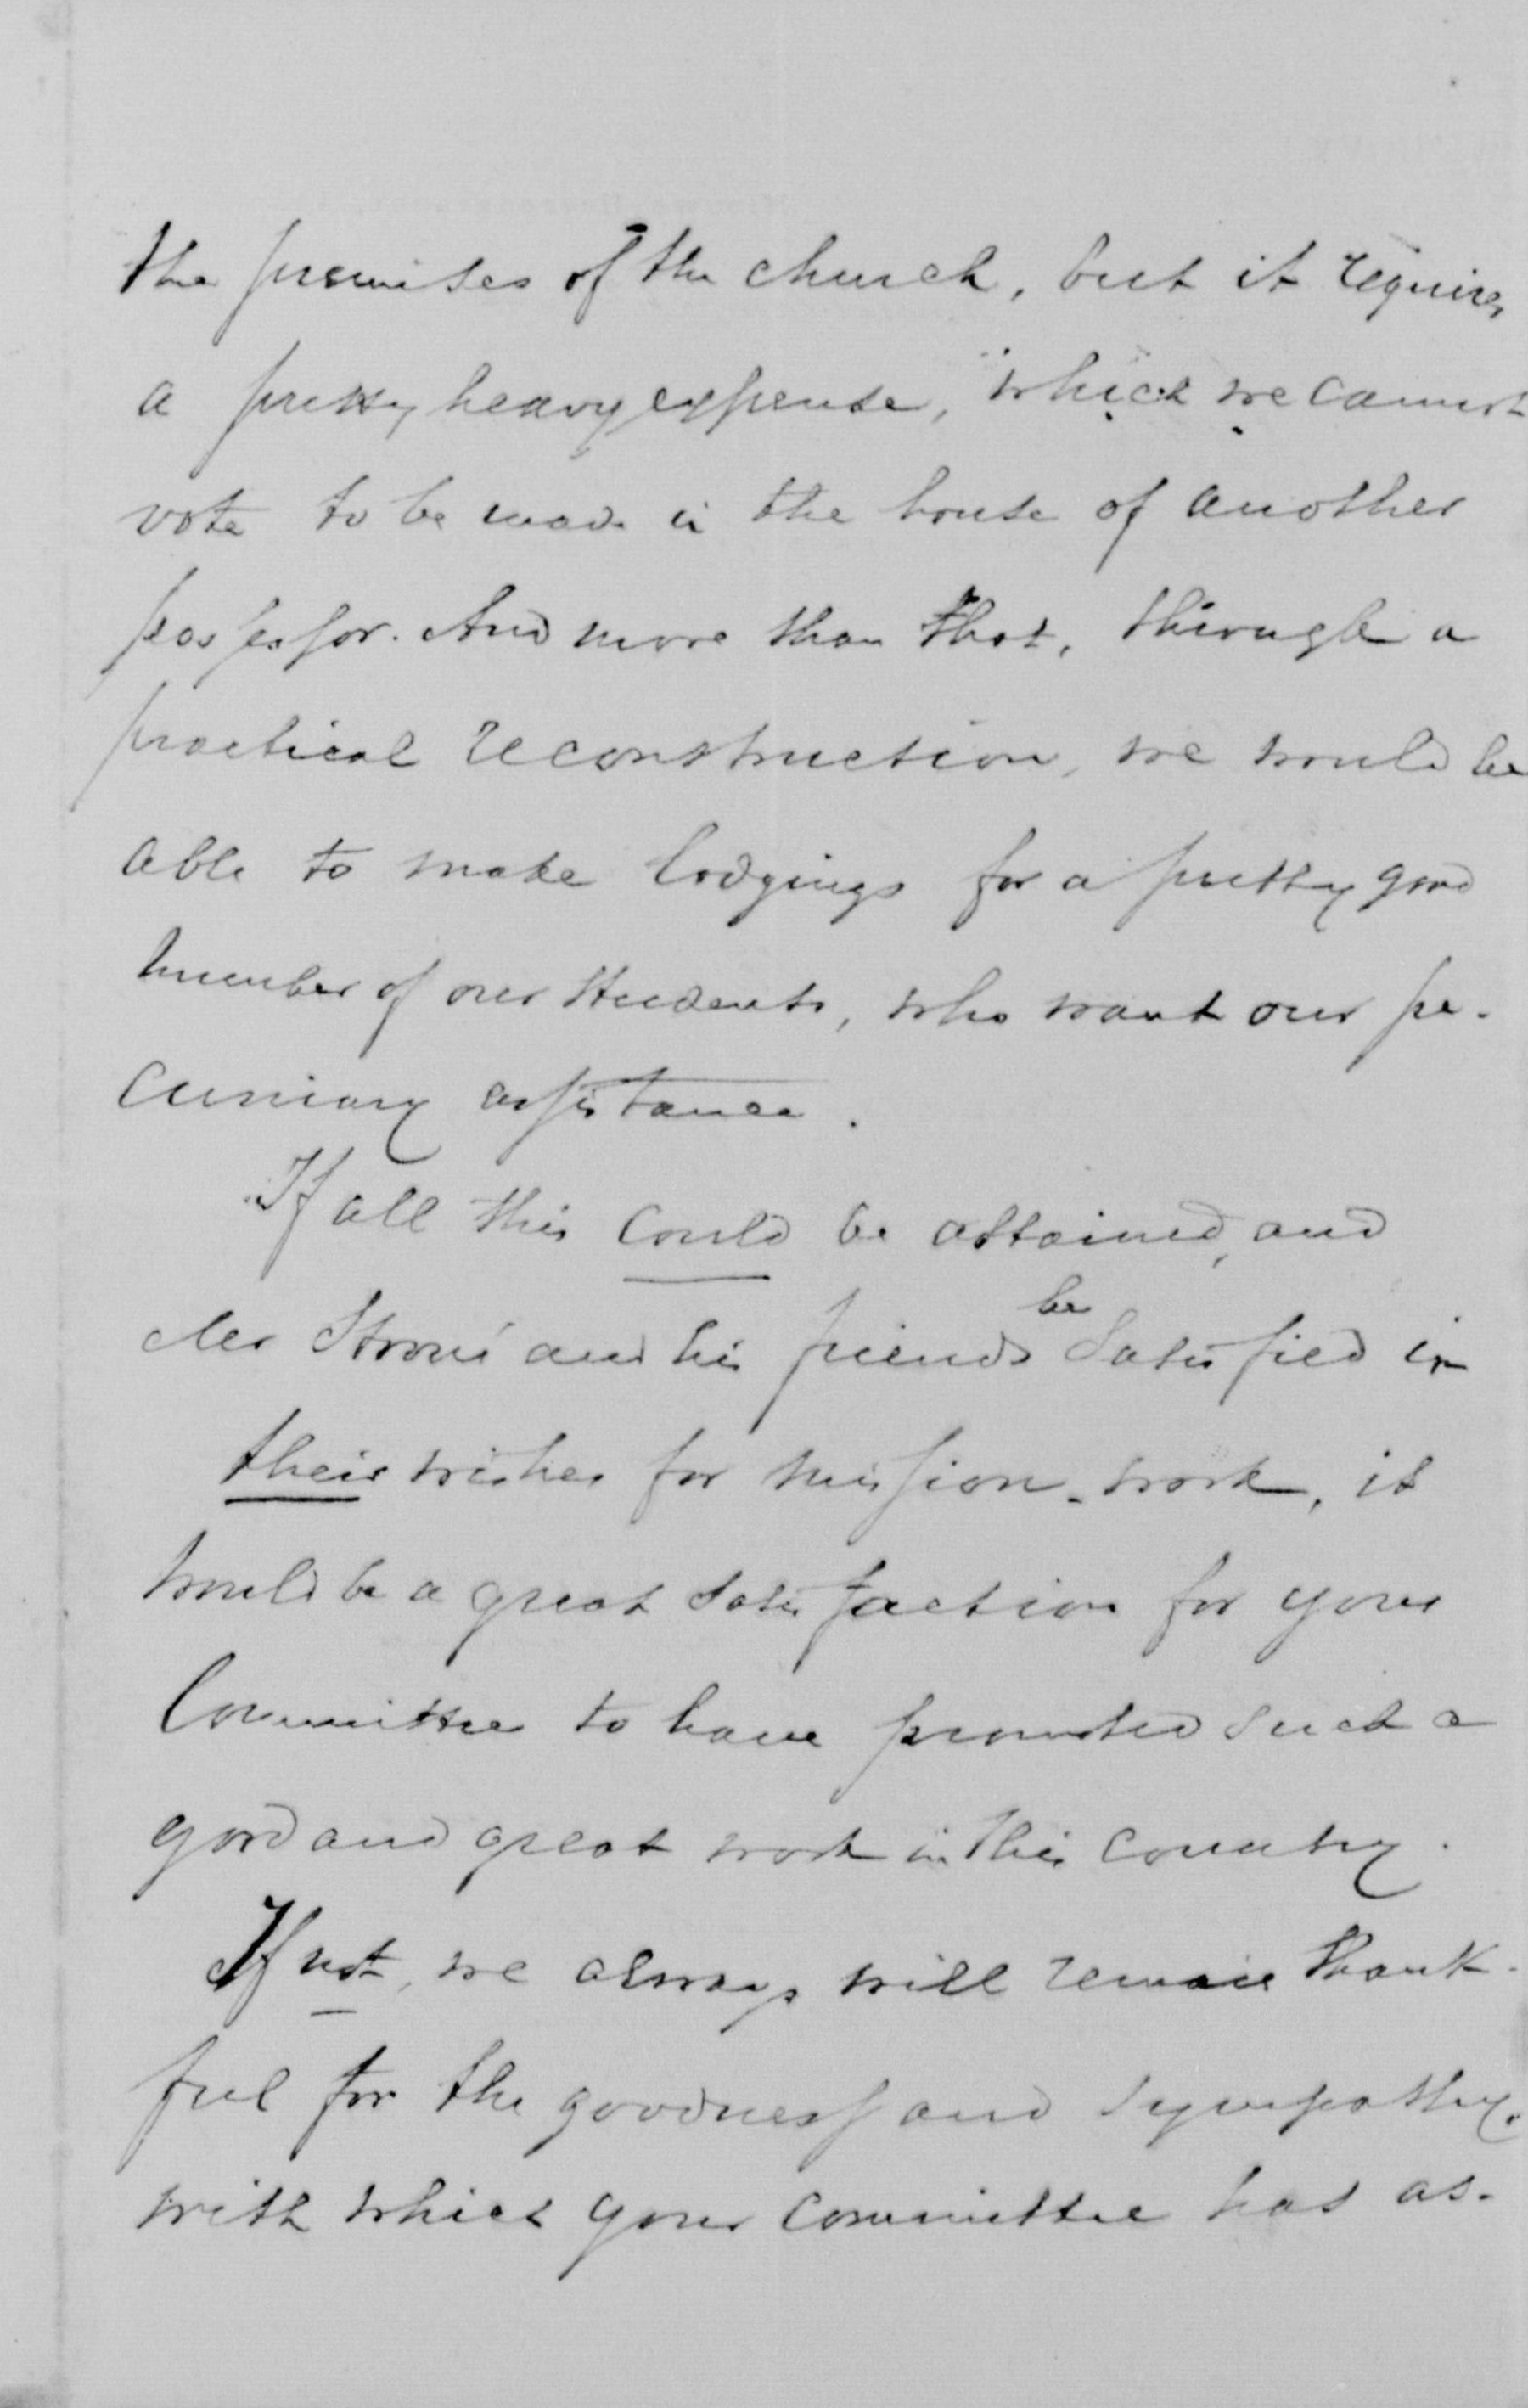 the premises of the church, but it requires
a pretty heavy expense, which we cannot
vote to be made in the house of another
possessor. And more than that, through a
practical reconstruction, we would be
able to make lodgings for a pretty good
number of our students, who want our pe-
cuniary assistance.
If all this could be attained, and
Mr and his friends be satisfied in
their wishes for mission-work, it
would be a great satisfaction for your
Committee to have promoted such a
good and great work in this country.
If not, we always will remain thank-
ful for the goodness and sympathy,
with which your committee has as-